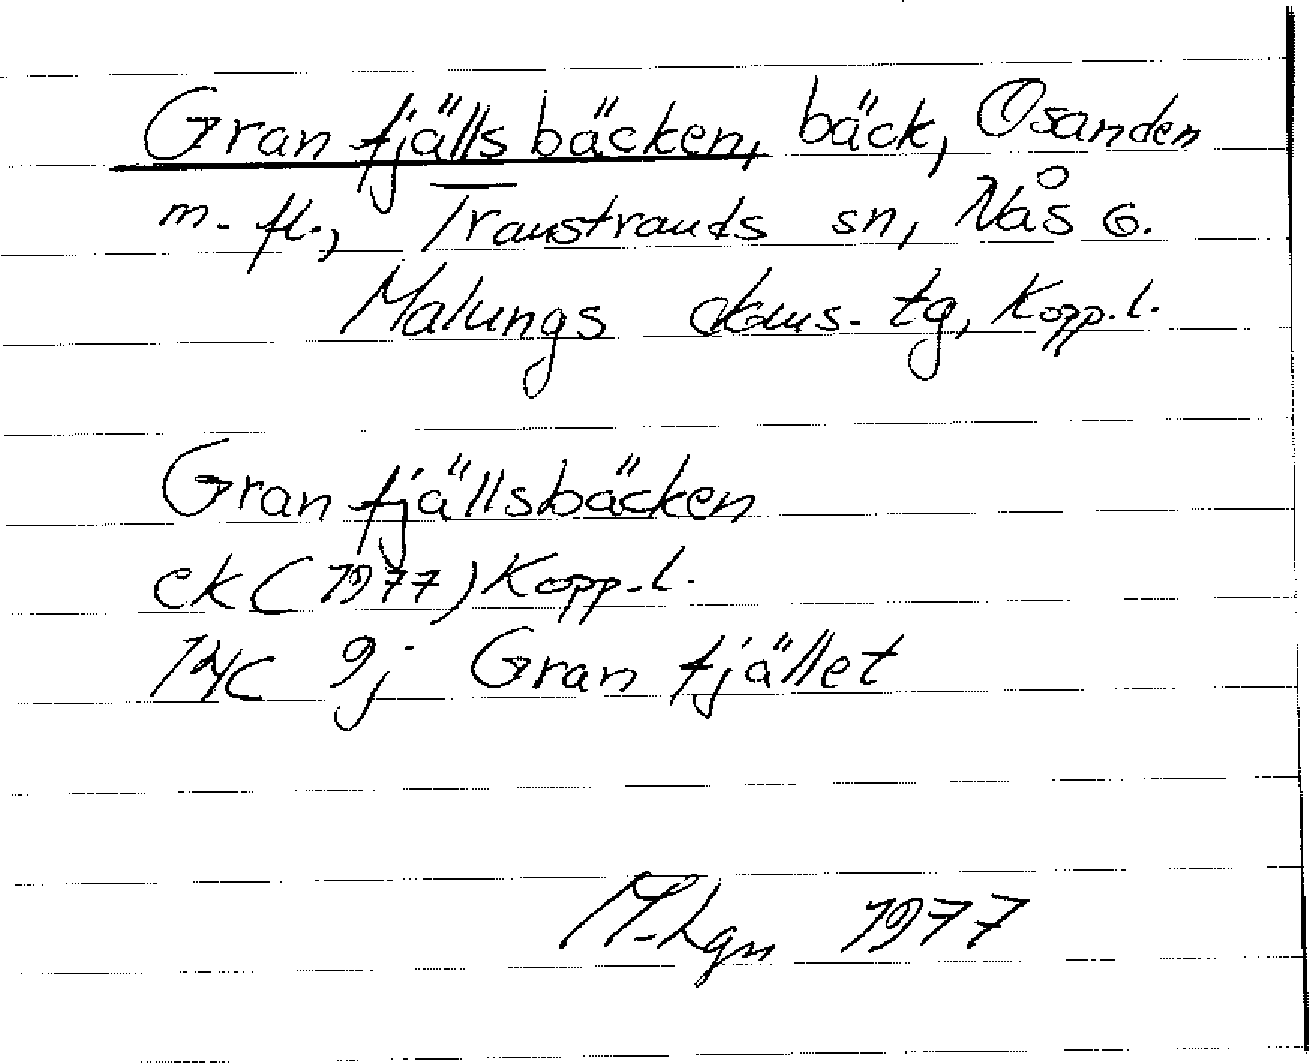 Granfjällsbäcken, bäck, Osanden
m. fl., Transtrands sn, Nås o.
Malungs doms. tg, Kopp. l.
Granfjällsbäcken
ek (1977) Kopp. l.
14C 9j Granfjället
M. Lgn 1977